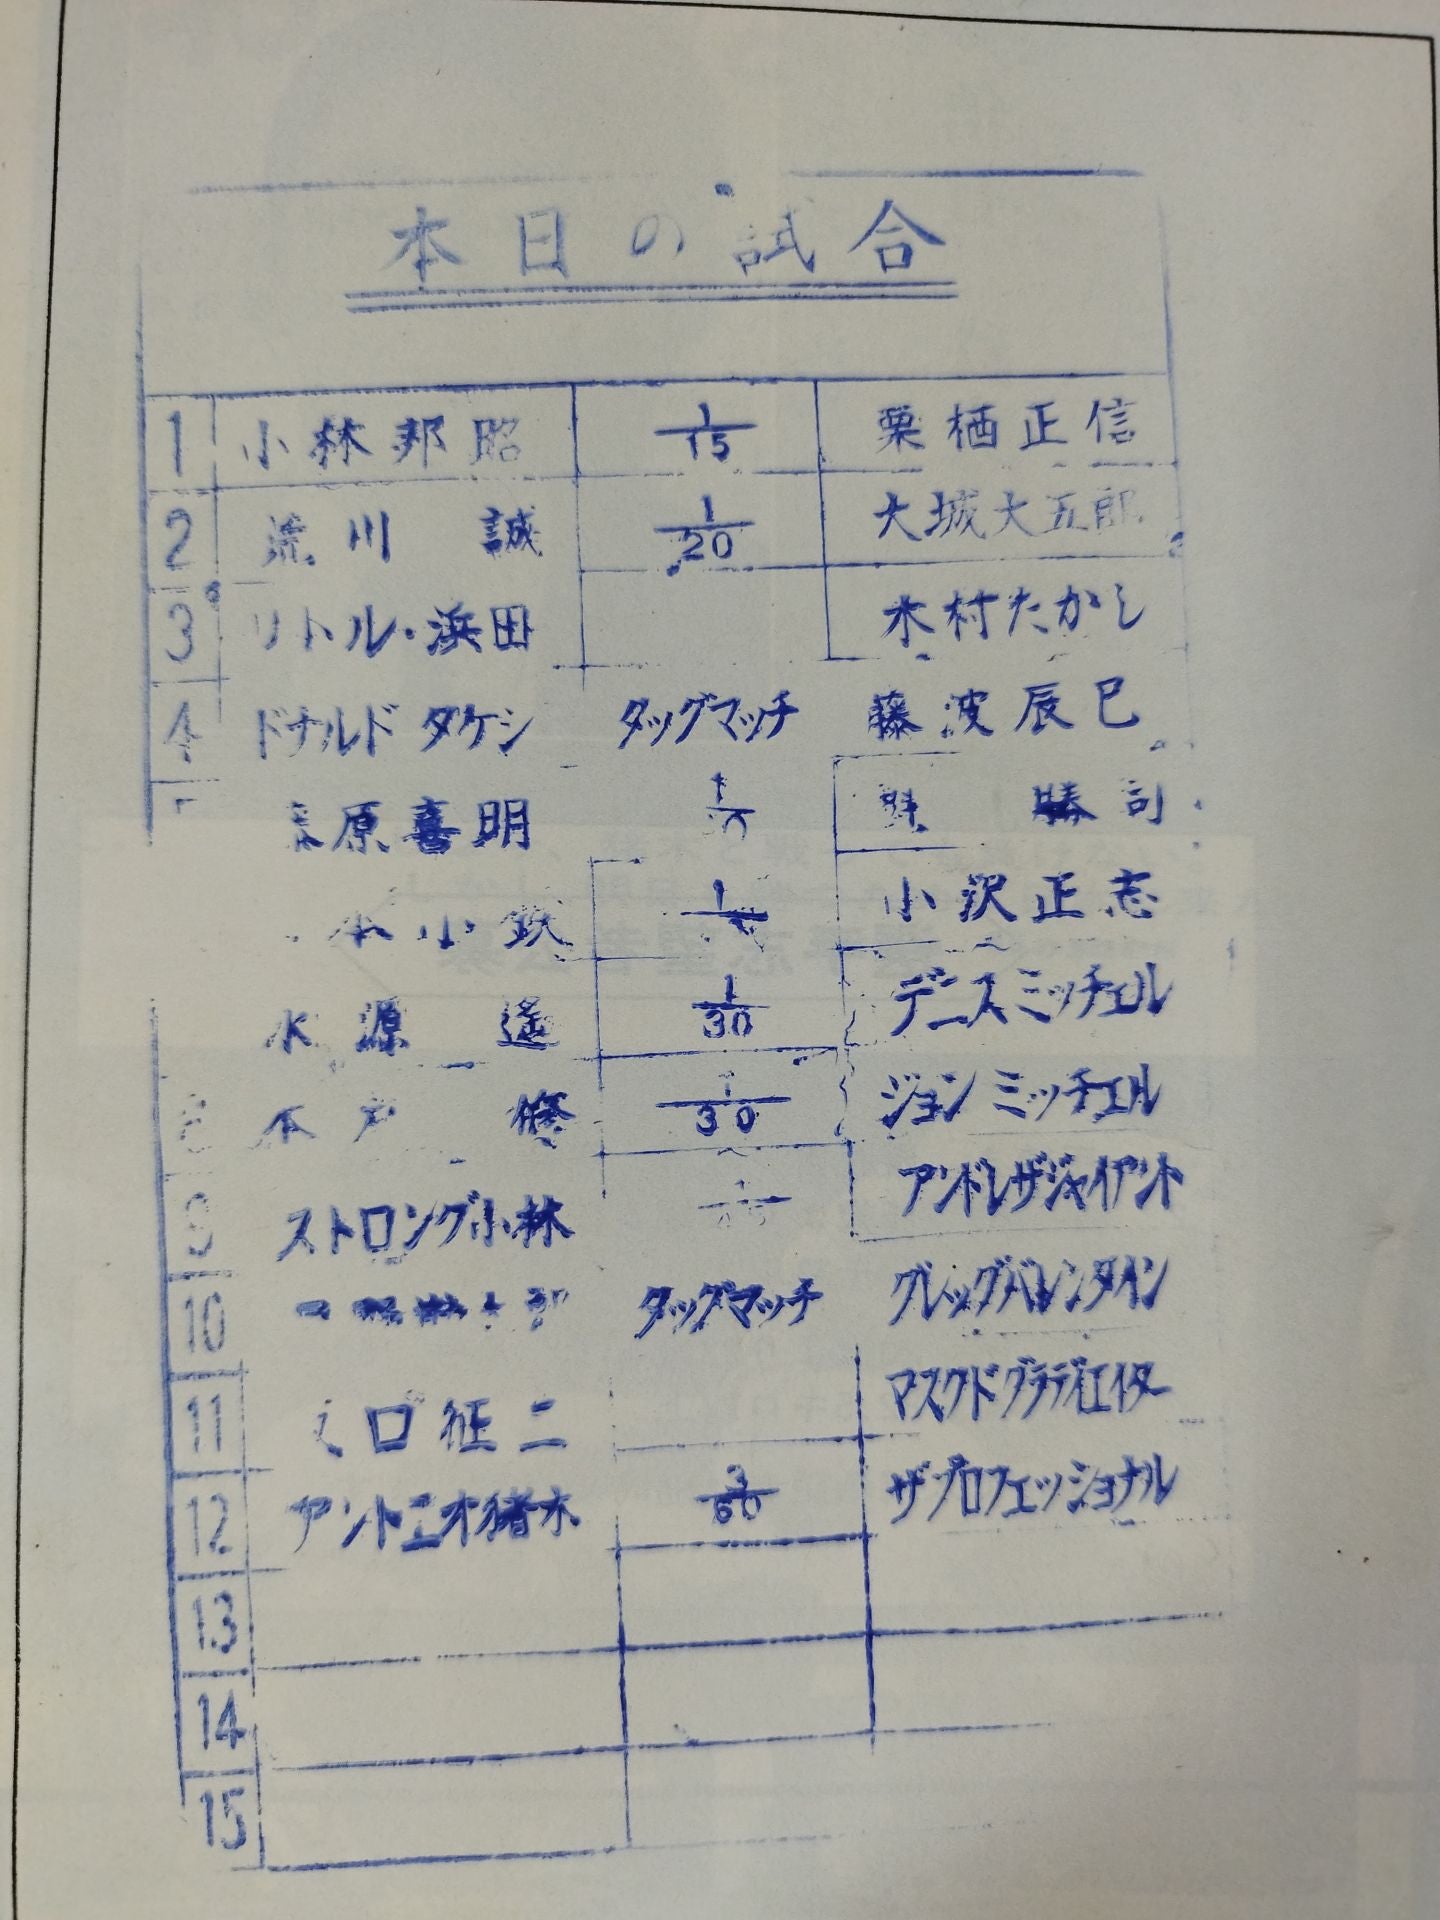 本日の試合
1 小林邦昭 1/15 栗栖正信
2 荒川 誠 1/20 大城大五郎
3 リトル・浜田 木村たかし
4 ドナルドタケシ タッグマッチ 藤波辰巳
原喜明 勝司
小鉄 小沢正志
水源 遙 1/30 デニスミッチェル
木戸 修 1/30 ジョンミッチェル
9 ストロング小林 アンドレザジャイアント
10 タッグマッチ グレッグバレンタイン
11 口征二 マスクドグラディエイター
12 アントニオ猪木 3/60 ザプロフェッショナル
13
14
15